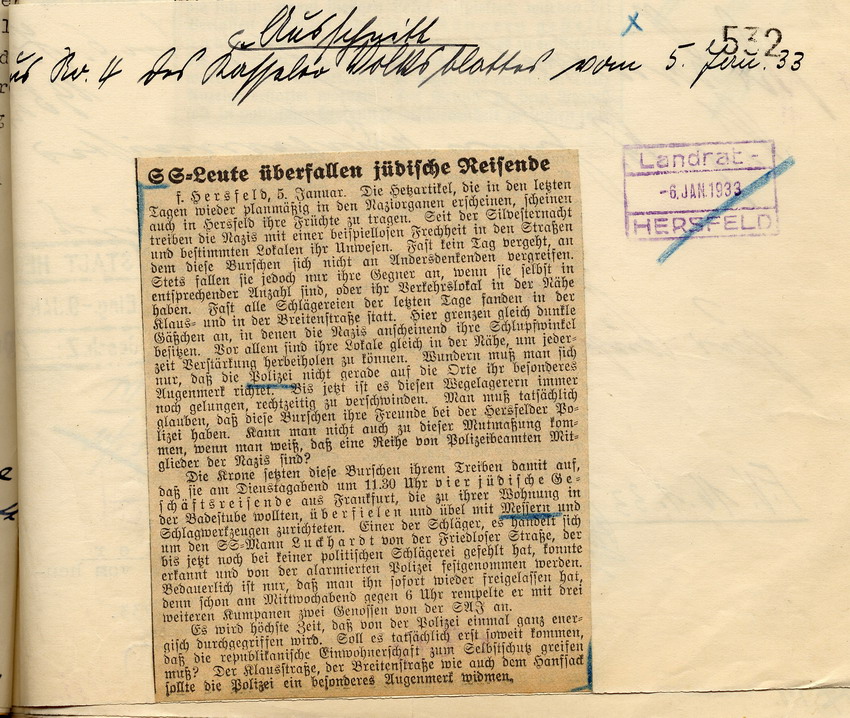 532
Ausschnitt
aus Nr. 4 des Kasseler Volksblattes vom 5. Jan. 33
Landrat
-6. JAN. 1933
HERSFELD
SS-Leute überfallen jüdische Reisende
f. Hersfeld, 5. Januar. Die Hetzartikel, die in den letzten
Tagen wieder planmäßig in den Naziorganen erscheinen, scheinen
auch in Hersfeld ihre Früchte zu tragen. Seit der Silvesternacht
treiben die Nazis mit einer beispiellosen Frechheit in den Straßen
und bestimmten Lokalen ihr Unwesen. Fast kein Tag vergeht, an
dem diese Burschen sich nicht an Andersdenkenden vergreifen.
Stets fallen sie jedoch nur ihre Gegner an, wenn sie selbst in
entsprechender Anzahl sind, oder ihr Verkehrslokal in der Nähe
haben. Fast alle Schlägereien der letzten Tage fanden in der
Klaus- und in der Breitenstraße statt. Hier grenzen gleich dunkle
Gäßchen an, in denen die Nazis anscheinend ihre Schlupfwinkel
besitzen. Vor allem sind ihre Lokale gleich in der Nähe, um jeder-
zeit Verstärkung herbeiholen zu können. Wundern muß man sich
nur, daß die Polizei nicht gerade auf die Orte ihr besonderes
Augenmerk richtet. Bis jetzt ist es diesen Wegelagerern immer
noch gelungen, rechtzeitig zu verschwinden. Man muß tatsächlich
glauben, daß diese Burschen ihre Freunde bei der Hersfelder Po-
lizei haben. Kann man nicht auch zu dieser Mutmaßung kom-
men, wenn man weiß, daß eine Reihe von Polizeibeamten Mit-
glieder der Nazis sind?
Die Krone setzten diese Burschen ihrem Treiben damit auf,
daß sie am Dienstagabend um 11.30 Uhr vier jüdische Ge-
schäftsreisende aus Frankfurt, die zu ihrer Wohnung in
der Badestube wollten, überfielen und übel mit Messern und
Schlagwerkzeugen zurichteten. Einer der Schläger, es handelt sich
um den SS-Mann Luckhardt von der Friedloser Straße, der
bis jetzt noch bei keiner politischen Schlägerei gefehlt hat, konnte
erkannt und von der alarmierten Polizei festgenommen werden.
Bedauerlich ist nur, daß man ihn sofort wieder freigelassen hat,
denn schon am Mittwochabend gegen 6 Uhr rempelte er mit drei
weiteren Kumpanen zwei Genossen von der SAJ an.
Es wird höchste Zeit, daß von der Polizei einmal ganz ener-
gisch durchgegriffen wird. Soll es tatsächlich erst soweit kommen,
daß die republikanische Einwohnerschaft zum Selbstschutz greifen
muß? Der Klausstraße, der Breitenstraße wie auch dem Hanfsack
sollte die Polizei ein besonderes Augenmerk widmen.